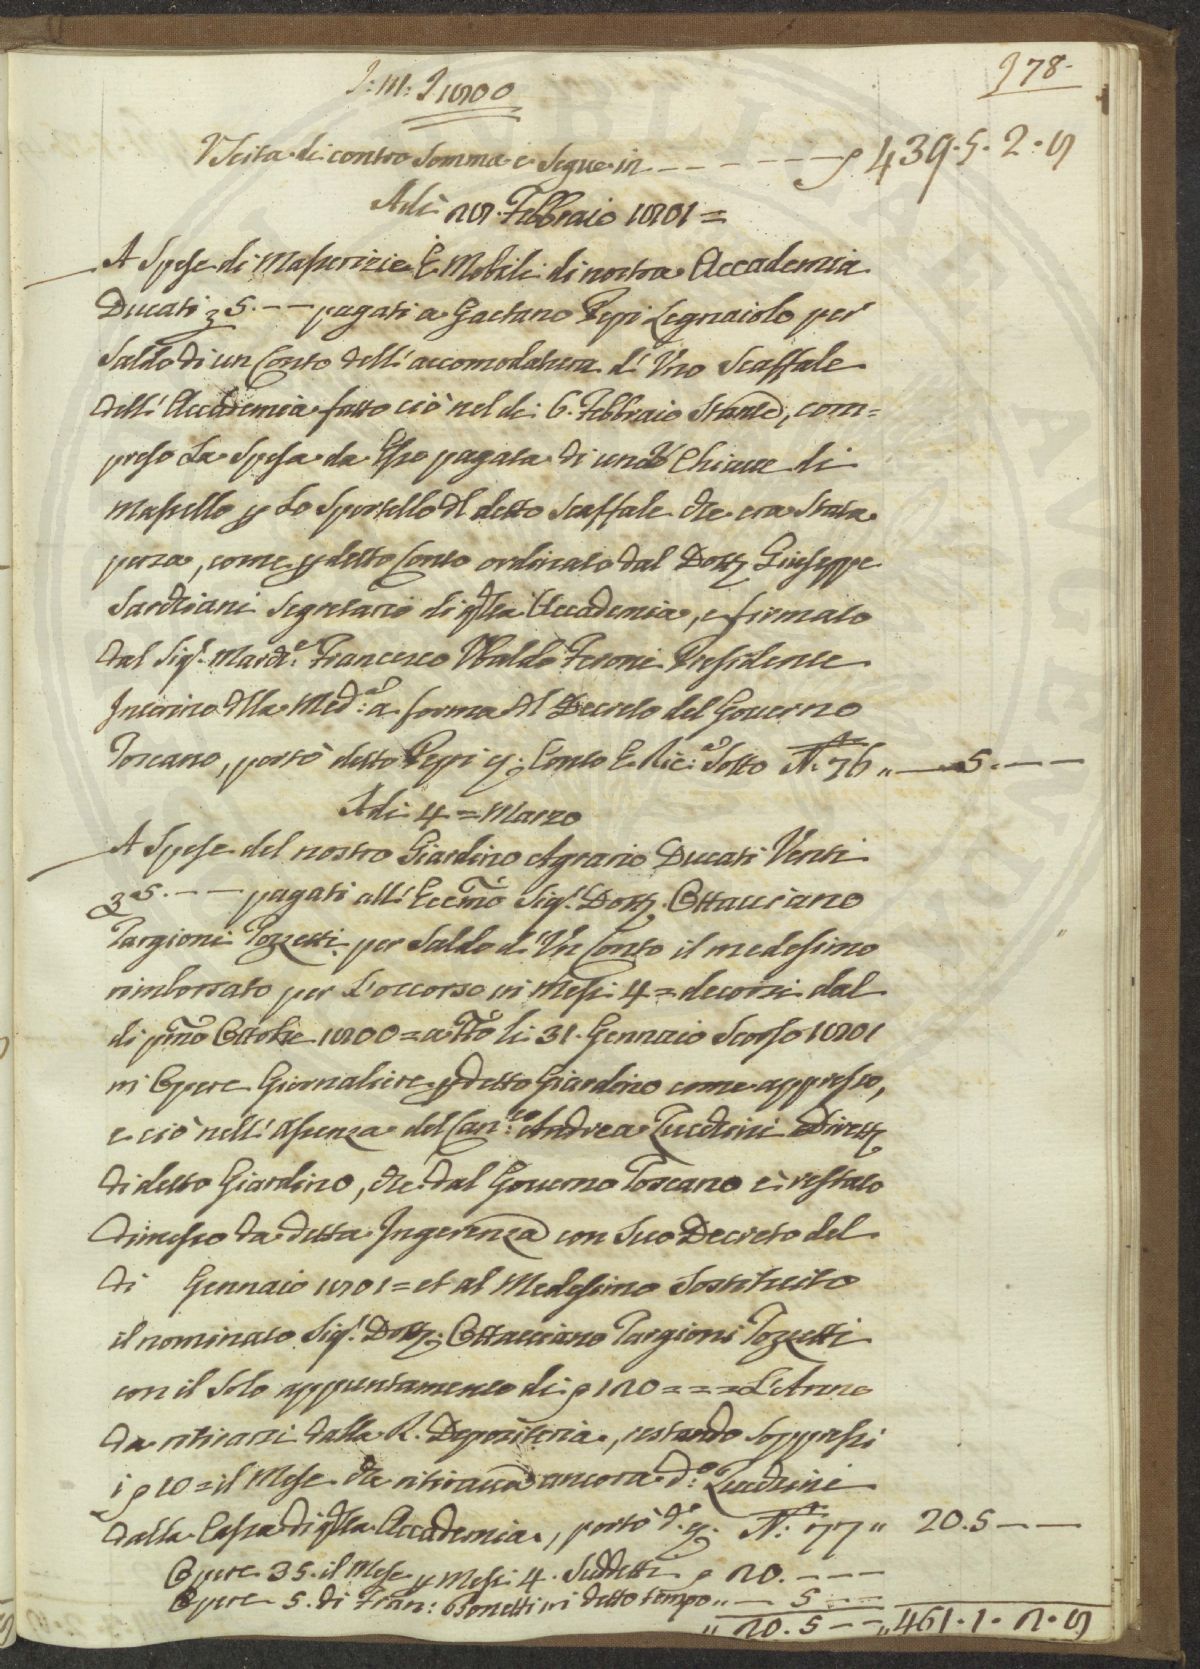 178
J: M: J 1800
Uscita di contro somma e segue in — — — — — — ƿ 439.5.2.8
Adì 28. Febbraio 1801 =
A Spese di Masserizie E Mobili di nostra Accademia
Ducati 35. — — pagati a Gaetano Pepi Legnaiolo per
Saldo di un Conto dell'accomodatura d'Uno Scaffale
dell'Accademia fatto ciò nel dì 6. Febbraio Stante, com=
preso La Spesa da Esso pagata di una Chiave di
Maschio p Lo Sportello dl detto Scaffale che era Stata
persa, come p detto Conto ordinato dal Dott Giuseppe
Sarchiani Segretario di qsta Accademia, e firmato
dal Sigr. March:e Francesco Ubaldo Feroni Presidente
Interino dlla Med:a a forma dl Decreto del Governo
Toscano, portò detto Pepi p: Conto E Ric:a Sotto N: 76 „ — 5. — —
Adì 4 = Marzo
A Spese del nostro Giardino Agrario Ducati Venti
35. — — pagati all'Eccmo Sigr. Dott. Ottaviano
Targioni Tozzetti per Saldo d'Un Conto il medesimo
rimborsato per L'occorso in Mesi 4 = decorsi dal
di pmo Ottobre 1800 = a tto li 31. Gennaio Scorso 1801
in Opere Giornaliere p detto Giardino come appresso,
e ciò nell'Assenza del Can:co Andrea Zucchini Dirett
di detto Giardino, che dal Governo Toscano è restato
dimesso da detta Ingerenza con Suo Decreto del
di Gennaio 1801 = et al Medesimo Sostituito
il nominato Sigr. Dott: Ottaviano Targioni Tozzetti
con il Solo appuntamento di ƿ 120 = = = L'Anno
da ritirarsi dalla R. Depositeria, restando Soppressi
i ƿ 10 = il Mese che ritirava ancora d:o Zucchini
dalla Cassa di qsta Accademia, portò d:o p: N: 77 „ 20.5 — —
Opere 35. il Mese p Mesi 4. Suddetti ƿ 20. — — —
Opere 5. di Fran: Bonetti in detto tempo „ — 5 — —
„ 20.5 — — „ 461.1.2.8